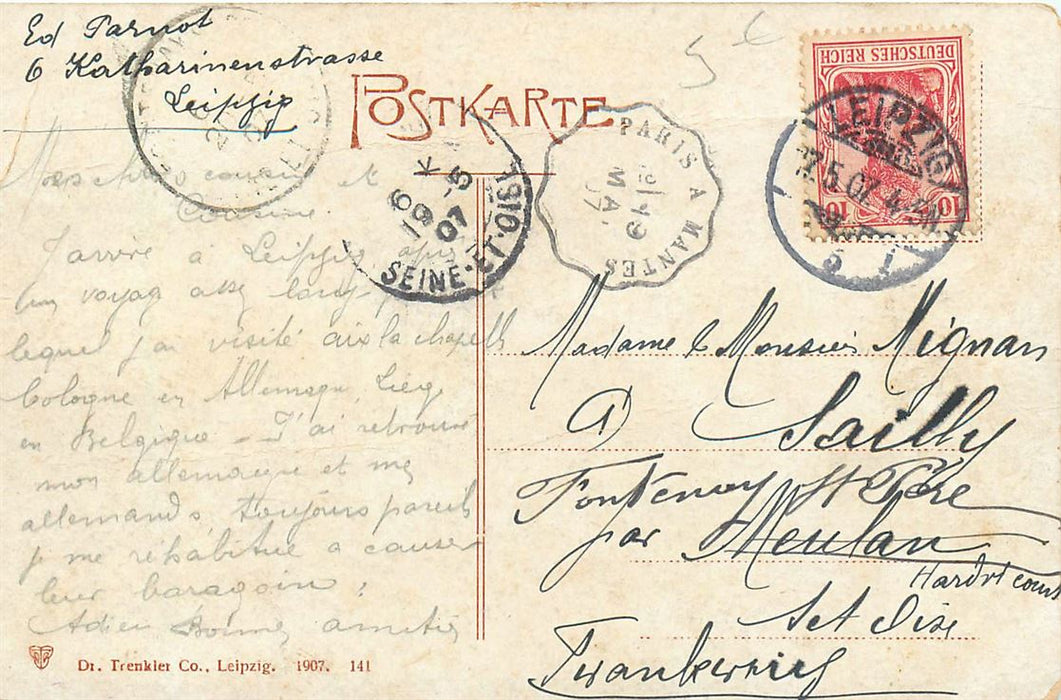 Ed Parnot
6 Katharinenstrasse
Leipzig
POSTKARTE
DEUTSCHES REICH
10 10
LEIPZIG
5.07
PARIS A MANTES
19
MA
07
19 - 5
07
SEINE-ET-OISE
Mes chers cousin et
Cousine.
J'arrive à Leipzig après
un voyage assez long
lequel j'ai visité aix la chapelle
Cologne en Allemagne, Liège
en Belgique - J'ai retrouvé
mon allemagne et mes
allemands, toujours pareils
je me réhabitue a causer
leur baragoin :
Adieu Bonnes amitiés
Madame & Monsieur Mignan
à Sailly
Fontenay St Père
par Meulan
Hardricourt
Set Oise
Frankreich
Dr. Trenkler Co., Leipzig. 1907. 141